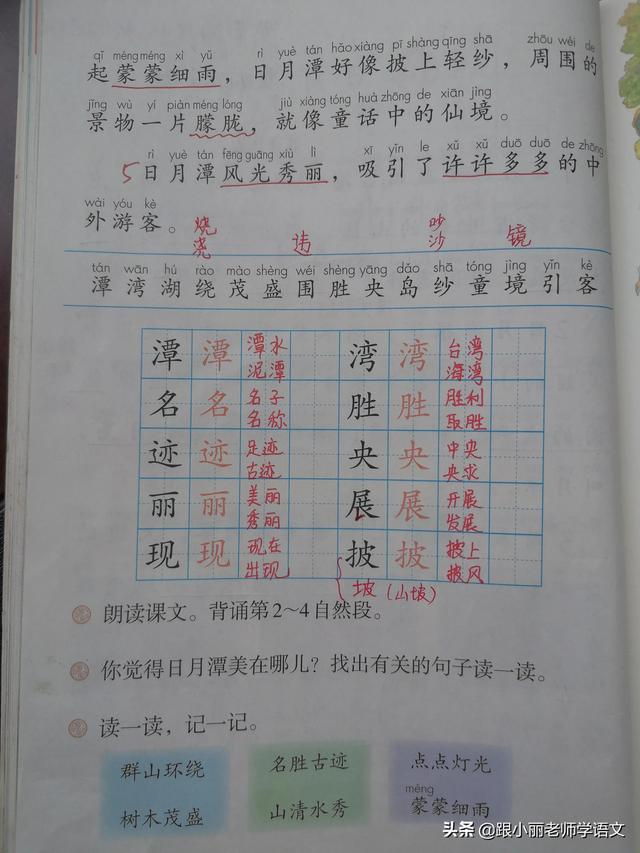 qǐ méng méng xì yǔ rì yuè tán hǎo xiàng pī shàng qīng shā zhōu wéi de
起蒙蒙细雨，日月潭好像披上轻纱，周围的
jǐng wù yí piàn méng lóng jiù xiàng tóng huà zhōng de xiān jìng
景物一片朦胧，就像童话中的仙境。
rì yuè tán fēng guāng xiù lì xī yǐn le xǔ xǔ duō duō de zhōng
5日月潭风光秀丽，吸引了许许多多的中
wài yóu kè
外游客。
烧 吵
浇 违 沙 镜
tán wān hú rào mào shèng wéi shèng yāng dǎo shā tóng jìng yǐn kè
潭 湾 湖 绕 茂 盛 围 胜 央 岛 纱 童 境 引 客
潭 潭 潭水 泥潭 湾 湾 台湾 海湾
名 名 名子 名称 胜 胜 胜利 取胜
迹 迹 足迹 古迹 央 央 中央 央求
丽 丽 美丽 秀丽 展 展 开展 发展
现 现 现在 出现 披 披 披上 披风
坡（山坡）
朗读课文。背诵第2～4自然段。
你觉得日月潭美在哪儿？找出有关的句子读一读。
读一读，记一记。
群山环绕 名胜古迹 点点灯光
méng
树木茂盛 山清水秀 蒙蒙细雨
头条 @跟小丽老师学语文